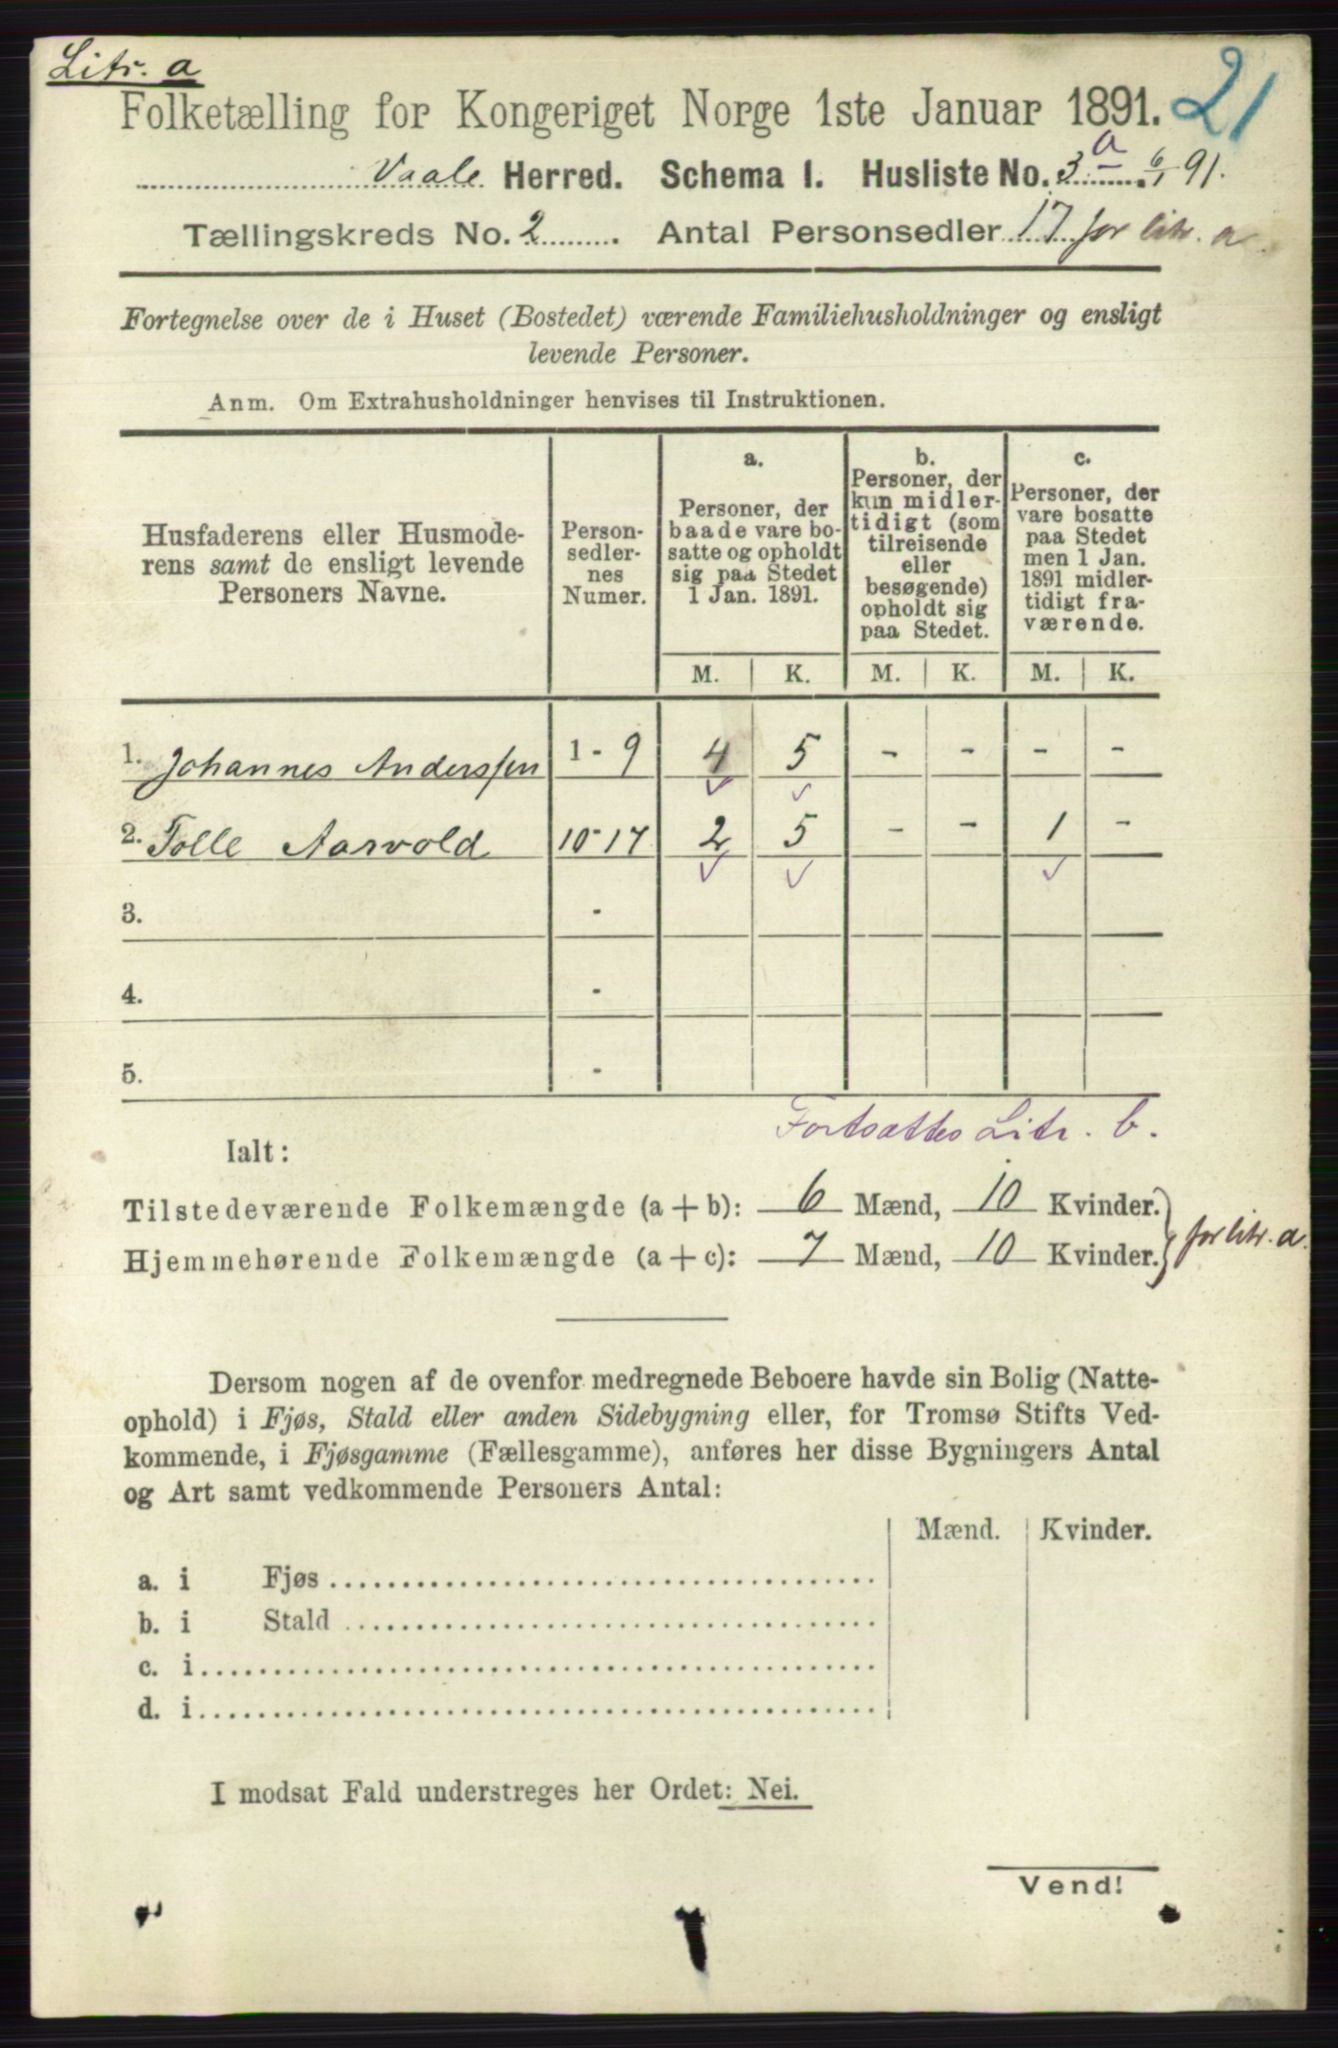 Litr. a
21
Folketælling for Kongeriget Norge 1ste Januar 1891.
Vaale Herred. Schema 1. Husliste No. 3 a 6/1 91.
Tællingskreds No. 2. Antal Personsedler 17 for litr. a
Fortegnelse over de i Huset (Bostedet) værende Familiehusholdninger og ensligt
levende Personer.
Anm. Om Extrahusholdninger henvises til Instruktionen.
Husfaderens eller Husmode-
rens samt de ensligt levende
Personers Navne.
Person-
sedler-
nes
Numer.
a.
Personer, der
baade vare bo-
satte og opholdt
sig paa Stedet
1 Jan. 1891.
b.
Personer, der
kun midler-
tidigt (som
tilreisende
eller
besøgende)
opholdt sig
paa Stedet.
c.
Personer, der
vare bosatte
paa Stedet
men 1 Jan.
1891 midler-
tidigt fra-
værende.
M. K. M. K. M. K.
1. Johannes Anderssen 1 - 9 4 5 - - - -
2. Tolle Aasvold 10-17 2 5 - - 1 -
3. -
4. -
5. -
Fortsættes Litr. b.
Ialt:
Tilstedeværende Folkemængde (a + b): 6 Mænd, 10 Kvinder.
Hjemmehørende Folkemængde (a + c): 7 Mænd, 10 Kvinder.
for litr. a.
Dersom nogen af de ovenfor medregnede Beboere havde sin Bolig (Natte-
ophold) i Fjøs, Stald eller anden Sidebygning eller, for Tromsø Stifts Ved-
kommende, i Fjøsgamme (Fællesgamme), anføres her disse Bygningers Antal
og Art samt vedkommende Personers Antal:
Mænd. Kvinder.
a. i Fjøs
b. i Stald
c. i
d. i
I modsat Fald understreges her Ordet: Nei.
Vend!